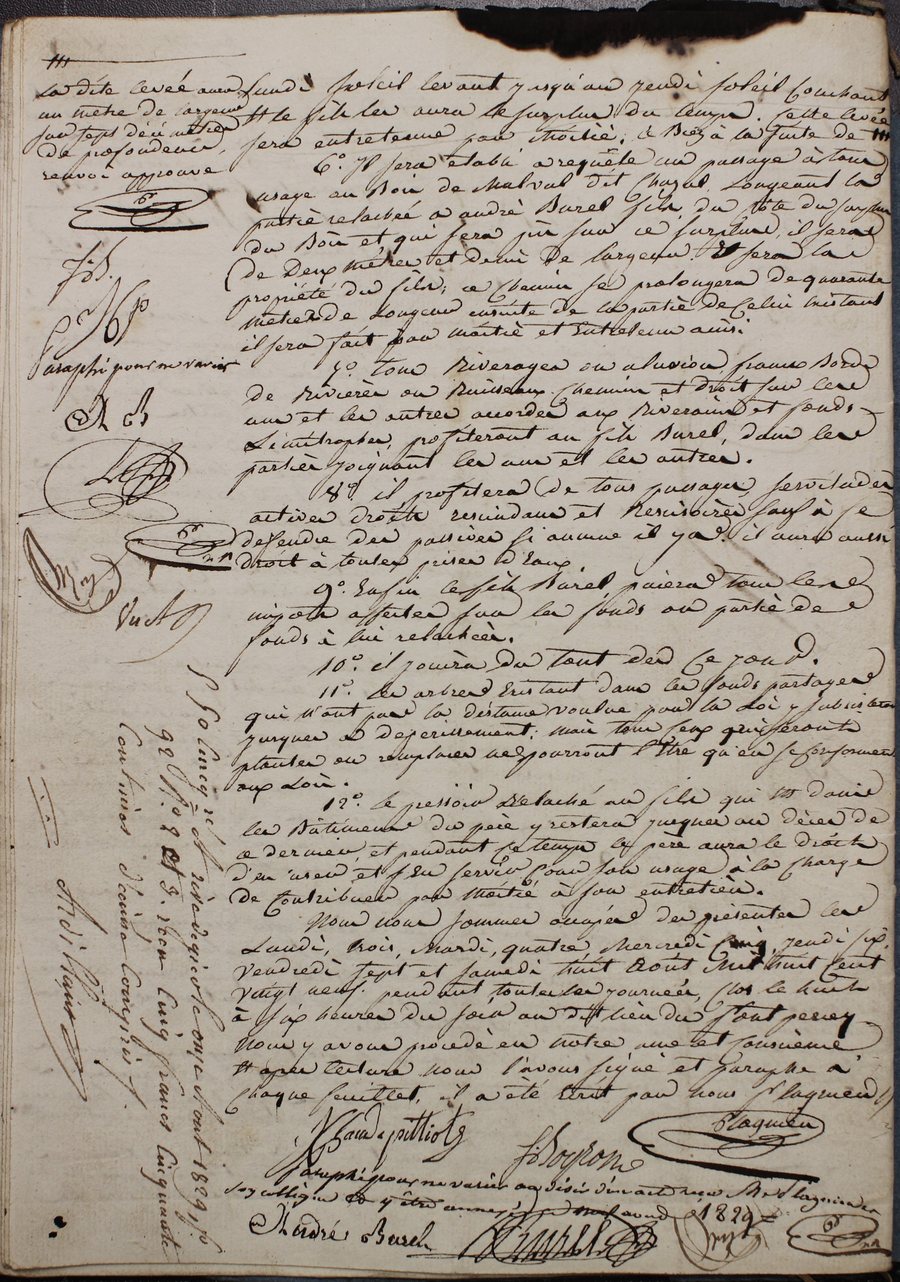 lundi soleil levant jusqu'au jeudi soleil couchant
et le fils les aura le surplus du temps. Cette levée
sera entretenue par moitié,
6.o Il sera établi a requête un passage à tous
usage au Bois de Malval dit Chazal, longeant la
partie relachée a andré Burel fils, du côté du surplus
du Bois et qui sera pris sur ce surplus, il sera
de deux mètres et demi de largeur Il sera la
propriété du fils; ce chemin se prolongera de quarante
mètres de longueur ensuite de la partie de celui
il sera fait par moitié et entretenu ainsi
7.o tous Riverages ou aluvion, francs Bords
de Rivières ou Ruisseaux chemins et droit sur les
uns et les autres accordés aux Riverains et fonds
Limitrophes, profiteront au fils Burel, dans les
parties joignant les uns et les autres.
8.o il profitera de tous passages, servitudes
actives droits rescindans et Rescisoires sauf à se
defendre des passives si aucune il y a. il aura aussi
droit à toutes prises d'Eaux
9.o Enfin le fils Burel paiera tous les
impots affectés sur les fonds ou partie de
fonds à lui relachées.
10.o il jouira du tout dès ce jour.
11.o les arbres Existant dans les fonds partagés
qui n'ont pas la distance voulue par la Loi y subsisteront
jusques a deperissement; mais tous ceux qui seront
plantés ou remplacés ne pourront l'être qu'en se conformant
aux Lois.
12.o le pressoir Relaché au fils qui est dans
les Bâtimens du père y restera jusques au décès de
ce dernier, et pendant ce temps le père aura le droit
d'en user et s'en servir pour son usage à la charge
de contribuer par moitié à son entretien.
Nous nous sommes occupés du présenter les
Lundi, trois, Mardi, quatre, Mercredi Cinq, jeudi six,
vendredi sept et samedi huit Août mil huit cent
vingt neuf. pendant toutes les journées, clos le huit
à six heures du soir au dit lieu du
nous y avons procédé en notre ame et conscience
et après lecture nous l'avons signé et paraphé à
chaque feuillet, il a été Ecrit par nous Plagnieu
Plagnieu
paraphé pour ne varier au désir d'un acte reçu Me Plagnieu
1829
André Burel
Burel
la dite levée aura
un mètre de largeur
sur sept décimètres
de profondeur,
renvoi approuvé
JB.
Paraphé pour ne varier
A B
août 1829, fo
reçu cinq francs cinquante
centimes dixième compris.